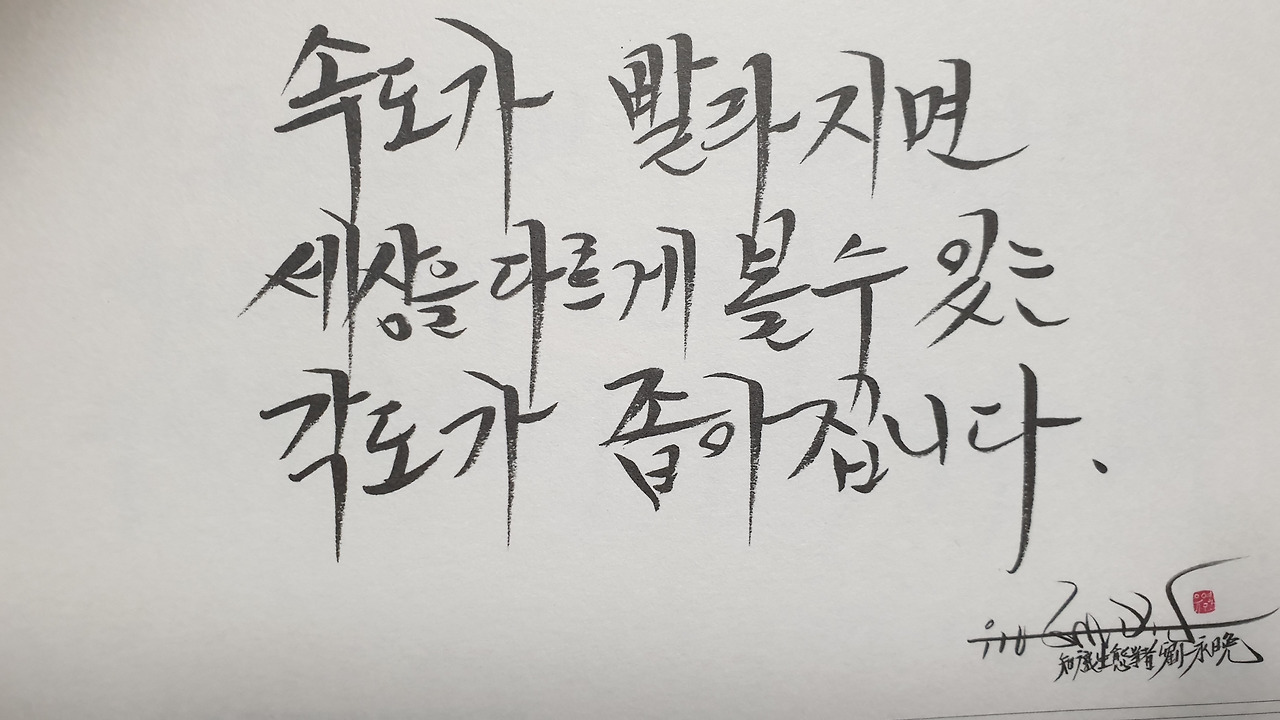 속도가 빨라지면
세상을 다르게 볼 수 있는
각도가 좁아집니다.
知識生態學者 劉永晩